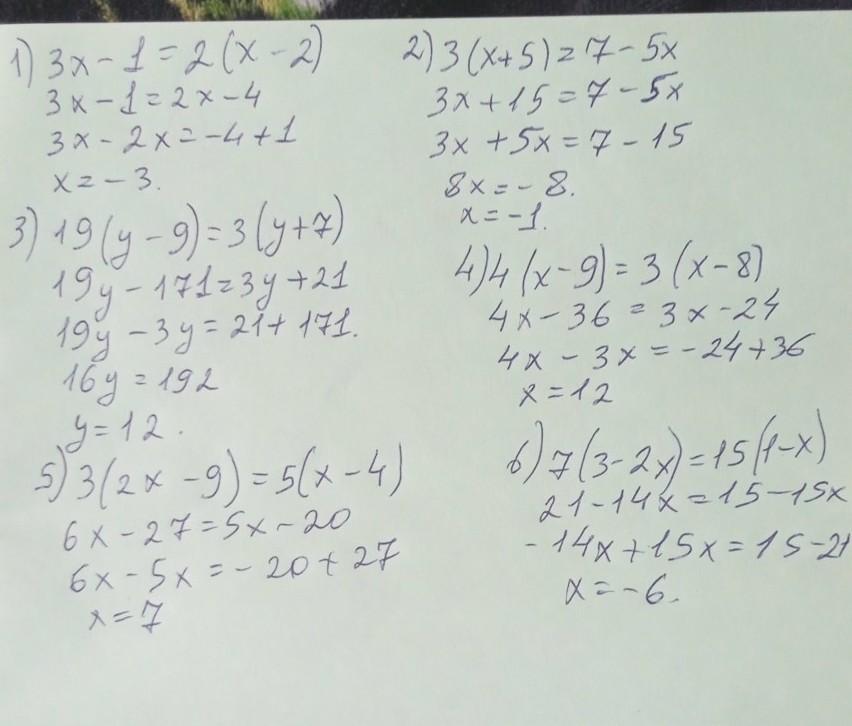 1) 3x - 1 = 2(x - 2)
3x - 1 = 2x - 4
3x - 2x = -4 + 1
x = -3.
2) 3(x+5) = 7 - 5x
3x + 15 = 7 - 5x
3x + 5x = 7 - 15
8x = -8.
x = -1.
3) 19(y - 9) = 3(y+7)
19y - 171 = 3y + 21
19y - 3y = 21 + 171.
16y = 192
y = 12.
4) 4(x-9) = 3(x-8)
4x - 36 = 3x - 24
4x - 3x = -24 + 36
x = 12
5) 3(2x - 9) = 5(x - 4)
6x - 27 = 5x - 20
6x - 5x = -20 + 27
x = 7
6) 7(3-2x) = 15(1-x)
21 - 14x = 15 - 15x
-14x + 15x = 15 - 21
x = -6.